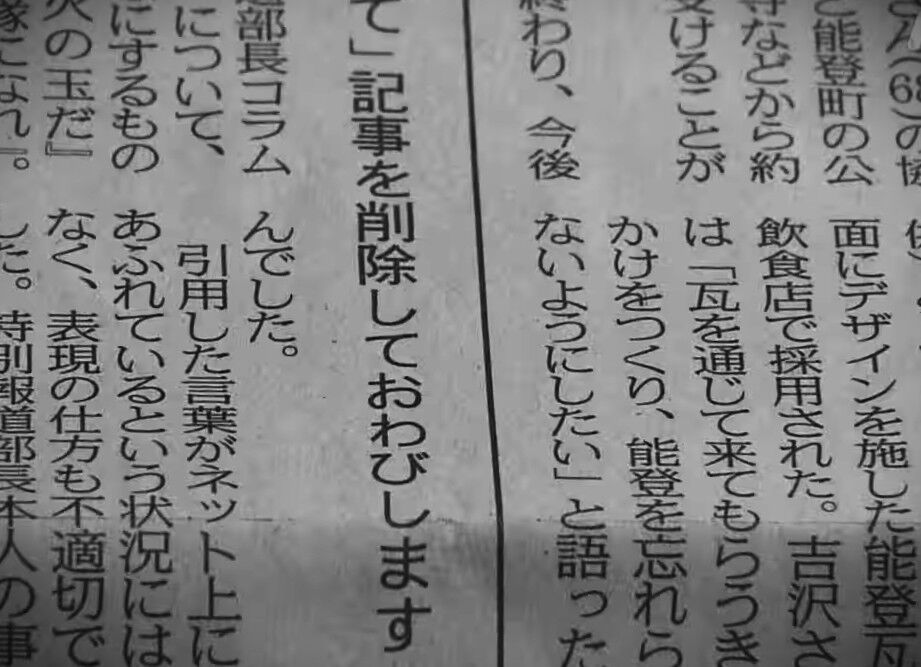 さん(68)の協
と能登町の公
などから約
受けることが
終わり、今後
面にデザインを施した能登瓦
飲食店で採用された。吉沢さ
は「瓦を通じて来てもらうき
かけをつくり、能登を忘れら
ないようにしたい」と語った
て」記事を削除しておわびします
部長コラム
について、
にするもの
火の玉だ』
になれ』。
んでした。
引用した言葉がネット上に
あふれているという状況には
なく、表現の仕方も不適切で
した。特別報道部長本人の事